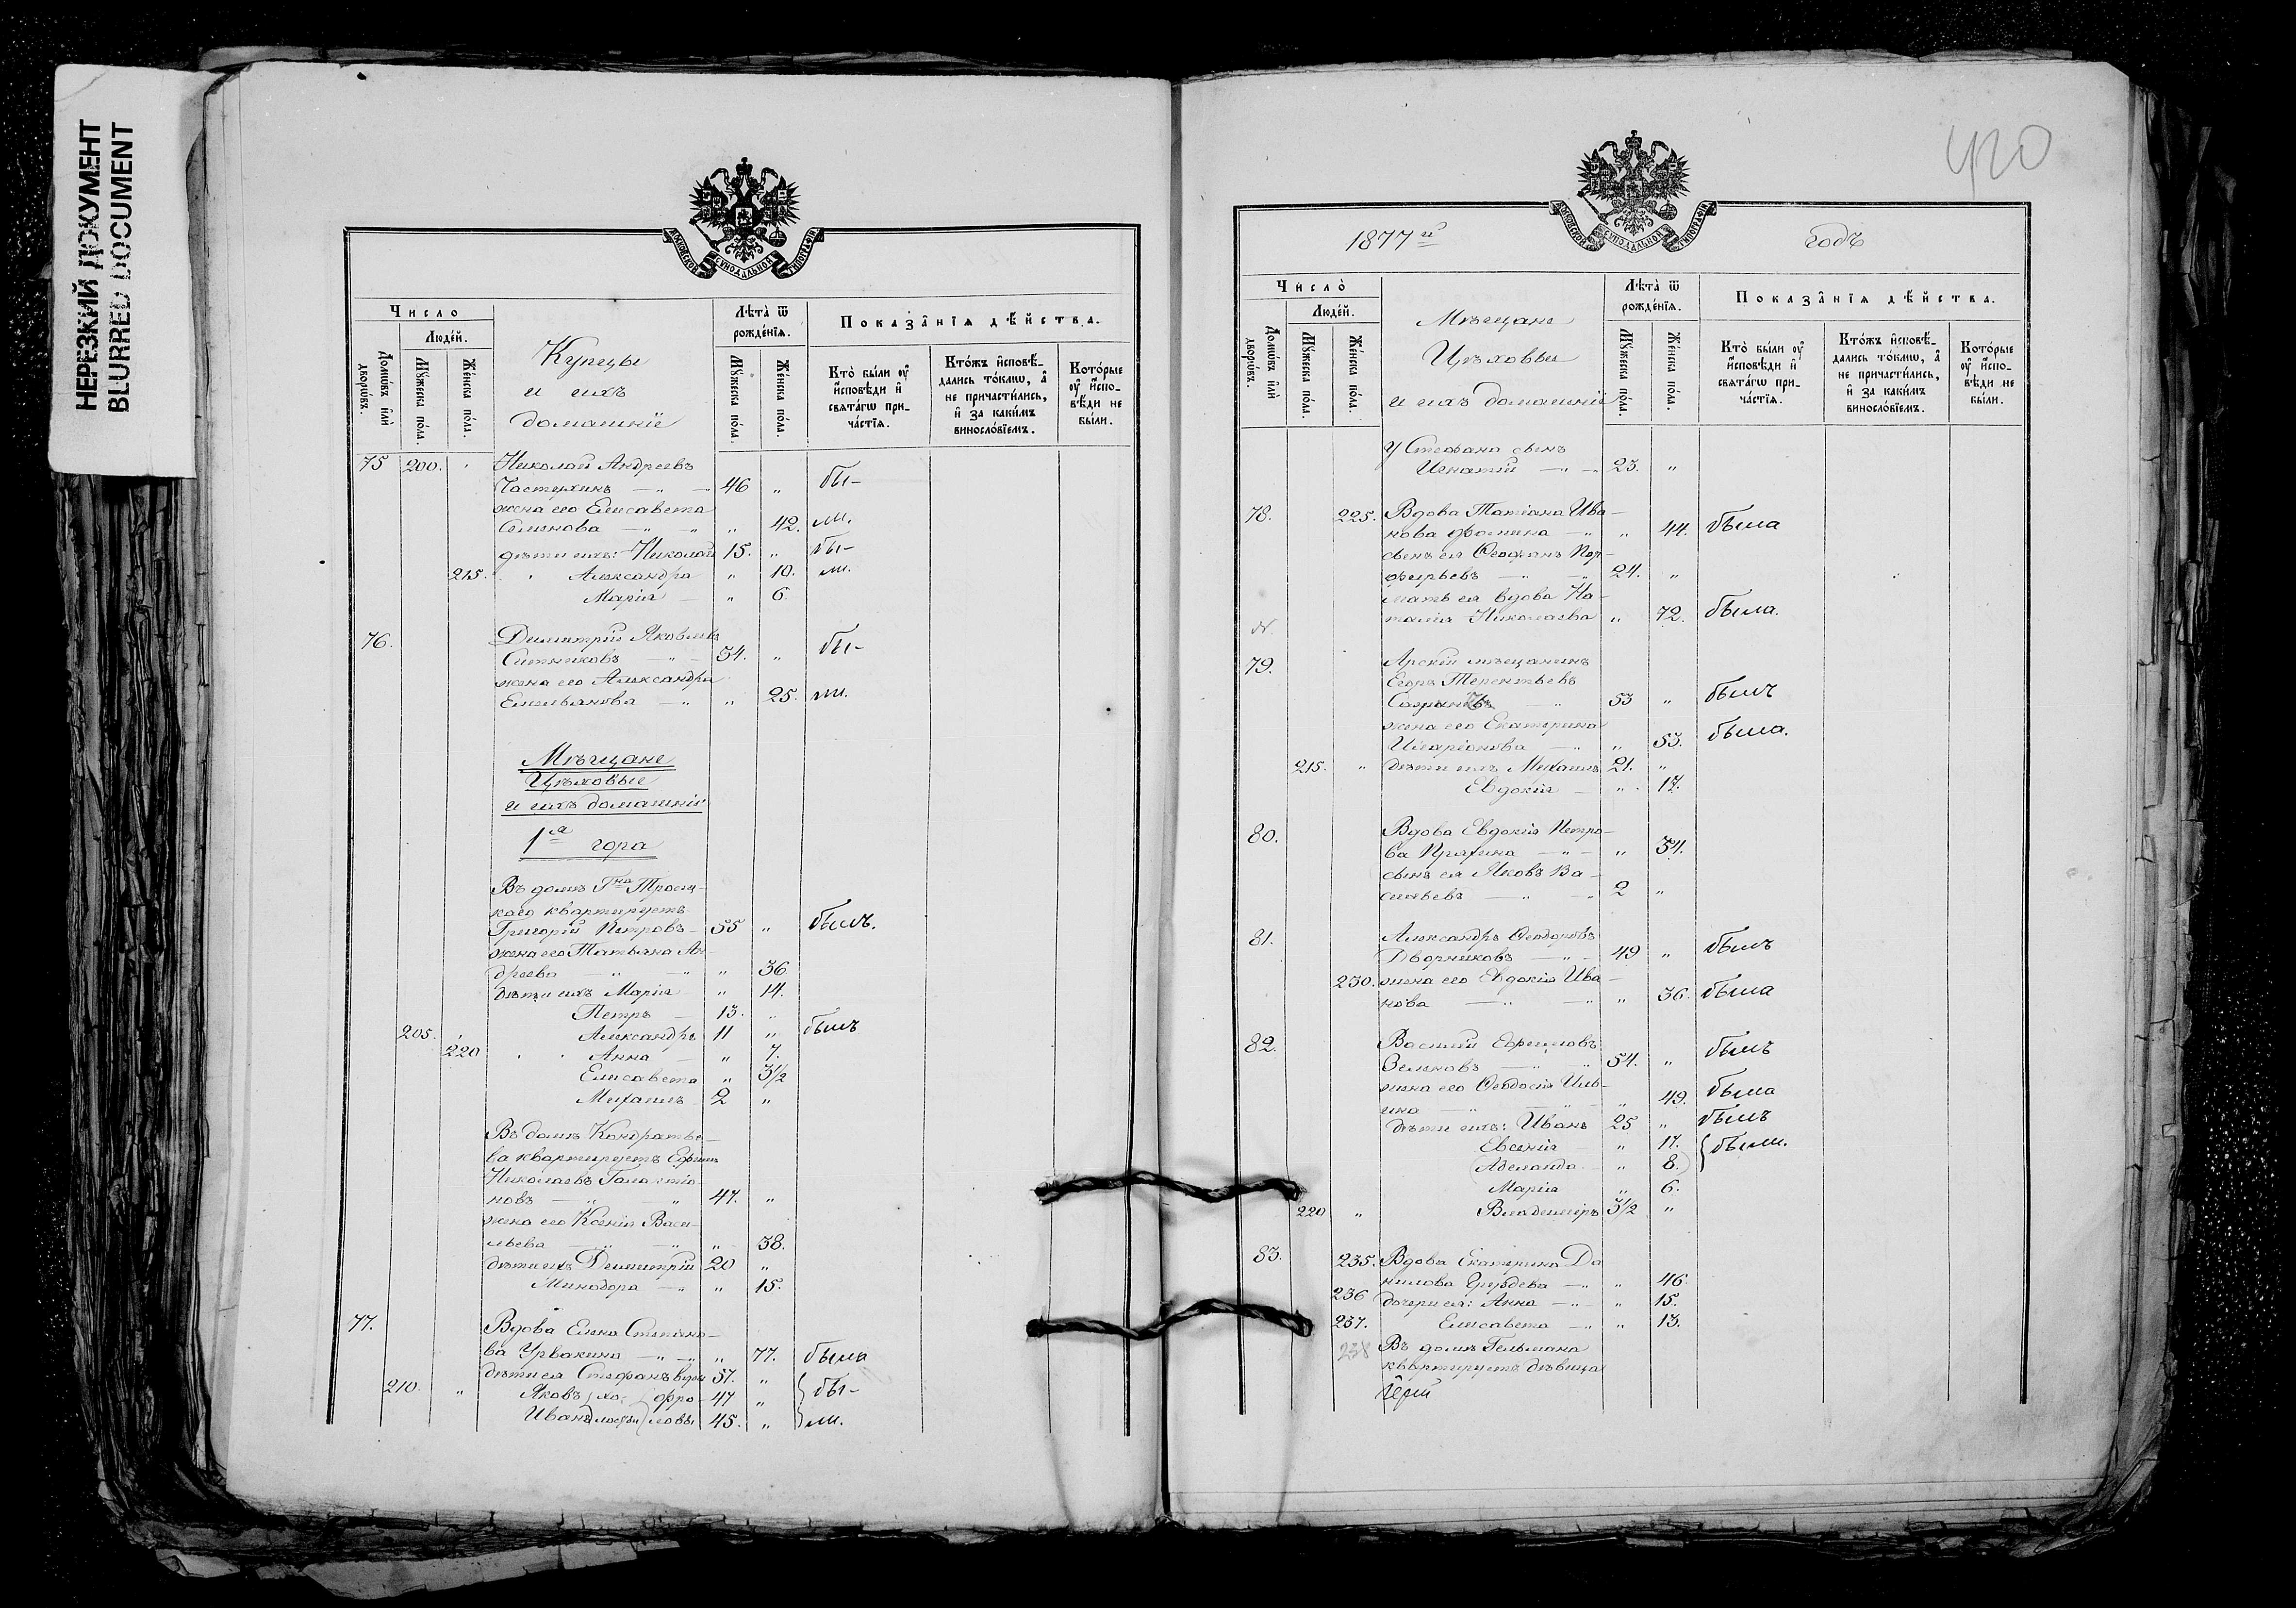 НЕРЕЗКИЙ ДОКУМЕНТ
BLURRED DOCUMENT
МОСКОВСКОЙ СѴНОДАЛЬНОЙ ТИПОГРАФІИ
Число
Людей.
Домовъ или дворовъ.
Мужеска пола.
Женска пола.
Купцы
и ихъ
домашніе
Лѣта ѿ
рожденія.
Мужеска пола.
Женска пола.
Показанія дѣйства.
Кто были оу
исповѣди и
свѧтагѡ при-
частїѧ.
Ктожъ исповѣ-
дались токмѡ, а
не причастились,
и за какимъ
винословїемъ.
Которые
оу испо-
вѣди не
были.
75 200. Николай Андреевъ
Частухинъ — „ — 46 „ бы-
жена его Елисавета
Семенова — „ — „ „ 42. ли.
дѣти ихъ: Николай 15. „ бы-
215. Александра „ 10. ли.
Марія — „ 6.
76. Димитрій Яковлевъ
Ситниковъ — „ — 34. „ бы-
жена его Александра
Емельянова — „ „ 25. ли.
Мѣщане
Цѣховые
и ихъ домашніе
1я гора
Въ домѣ Гна Троиц-
каго квартируетъ
Григорій Петровъ — 35 „ былъ.
жена его Татьяна Ан-
дреева — „ — „ „ 36
дѣти ихъ Марія „ 14.
Петръ — 13. „
205. Александръ 11 „ былъ
220 „ „ Анна — „ 7.
Елисавета „ 3½
Михаилъ 2 „
Въ домѣ Кондратье-
ва квартируетъ Ефимъ
Николаевъ
новъ — „ — „ 47. „
жена его Ксенія Васи-
льева — „ — „ „ 38.
дѣти ихъ Димитрій 20 „
Минодора — „ „ 15.
77. Вдова Елена Степано-
ва Урванина — „ — „ „ 77. была
дѣти ея Стефанъ вдов 57. „
210. „ Яковъ хо- фро- 47 „ бы-
Иванъ лосты ловы 45. „ ли.
420
1877й годъ
МОСКОВСКОЙ СѴНОДАЛЬНОЙ ТИПОГРАФІИ
Число
Людей.
Домовъ или дворовъ.
Мужеска пола.
Женска пола.
Мѣщане
Цѣховые
и ихъ домашніе
Лѣта ѿ
рожденія.
Мужеска пола.
Женска пола.
Показанія дѣйства.
Кто были оу
исповѣди и
свѧтагѡ при-
частїѧ.
Ктожъ исповѣ-
дались токмѡ, а
не причастились,
и за какимъ
винословїемъ.
Которые
оу испо-
вѣди не
были.
У Стефана сынъ
Игнатій — „ — 23. „
78. 225. Вдова Татіана Ива-
нова Фомина — „ „ 44. была
сынъ ея Феофанъ Пор-
фирьевъ — „ — „ 24. „
мать ея вдова На-
талія Николаева „ 72. была.
79. Арскій мѣщанинъ
Егоръ Терентьевъ
— „ 53 „ былъ
жена его Екатерина
Иларіонова — „ „ 53. была.
215. „ дѣти ихъ Михаилъ 21. „
Евдокія — „ 17.
80. Вдова Евдокія Петро-
ва Пряхина — „ — „ 34.
сынъ ея Яковъ Ва-
сильевъ — „ — „ 2 „
81. Александръ Феодоровъ
Дворниковъ — „ — 49 „ былъ
230. жена его Евдокія Ива-
нова — „ — „ „ 36. была
82. Василій Ефремовъ
Зеленовъ — „ — „ 54. „ былъ
жена его Феодосія Иль-
ина — „ — „ „ 49. была
дѣти ихъ: Иванъ 25 „ былъ
Евгенія „ 17. были.
(Аделаида — „ 8.)
Марія „ 6.
220 „ Владиміръ 3½ „
83. 235. Вдова Екатерина Да
нилова Груздева — „ „ 46.
236 дочери ея: Анна — „ „ 15.
237. Елисавета — „ „ 13.
238 Въ домѣ Гельмана
квартируетъ дѣвица